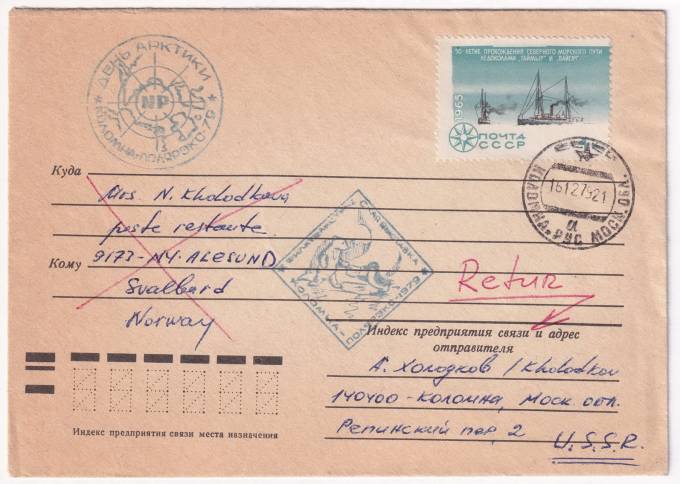 ДЕНЬ АРКТИКИ
NP
КОЛОМНА-ПОЛЯРЭКС-79
50-ЛЕТИЕ ПРОХОЖДЕНИЯ СЕВЕРНОГО МОРСКОГО ПУТИ
ЛЕДОКОЛАМИ "ТАЙМЫР" И "ВАЙГАЧ"
1965
ПОЧТА
СССР
16127921
КОЛОМНА-РУС МОСК. ОБЛ.
Куда
Mrs N. Kholodkova
poste restante
Кому
9173-NY-ALESUND
Svalbard
Norway
ВЫСТАВКА
КОЛОМНА
Retur
Индекс предприятия связи и адрес
отправителя
А. Холодков / Kholodkov
140400-Коломна, Моск обл.
Репинский пер, 2
U.S.S.R.
Индекс предприятия связи места назначения